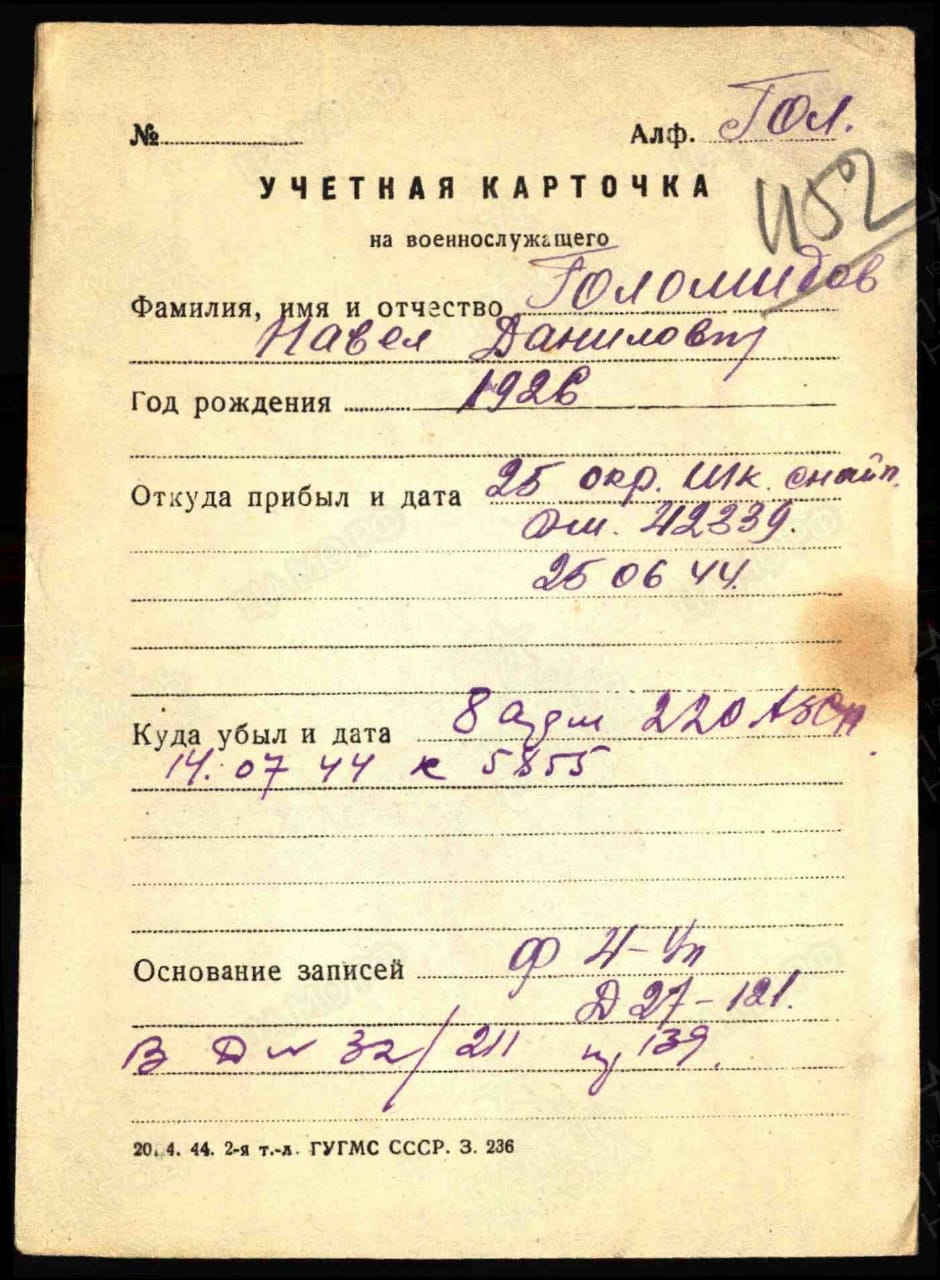 № Алф. Гол.
УЧЕТНАЯ КАРТОЧКА
452
на военнослужащего
Фамилия, имя и отчество Голомидов
Павел Данилович
Год рождения 1926
Откуда прибыл и дата 25 окр. шк. снайп.
42339.
25 06 44.
Куда убыл и дата 8 220 АЗСП
14. 07 44 к 5855
Основание записей Ф
Д 27-121.
В Д 32/211 139.
20. 4. 44. 2-я т.-л. ГУГМС СССР. З. 236